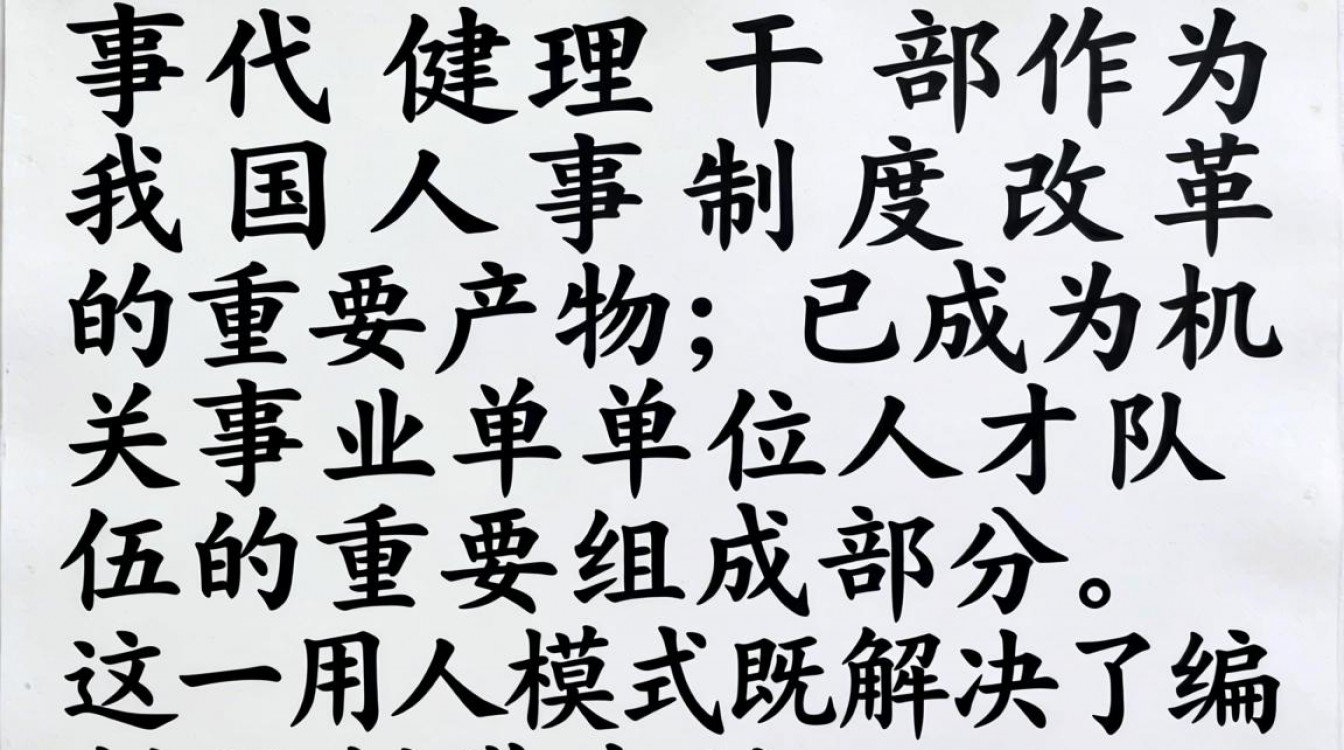 事代健理干部作为
我国人事制度改革
的重要产物；已成为机
关事业单单位人才队
伍的重要组成部分。
这一用人模式既解决了编